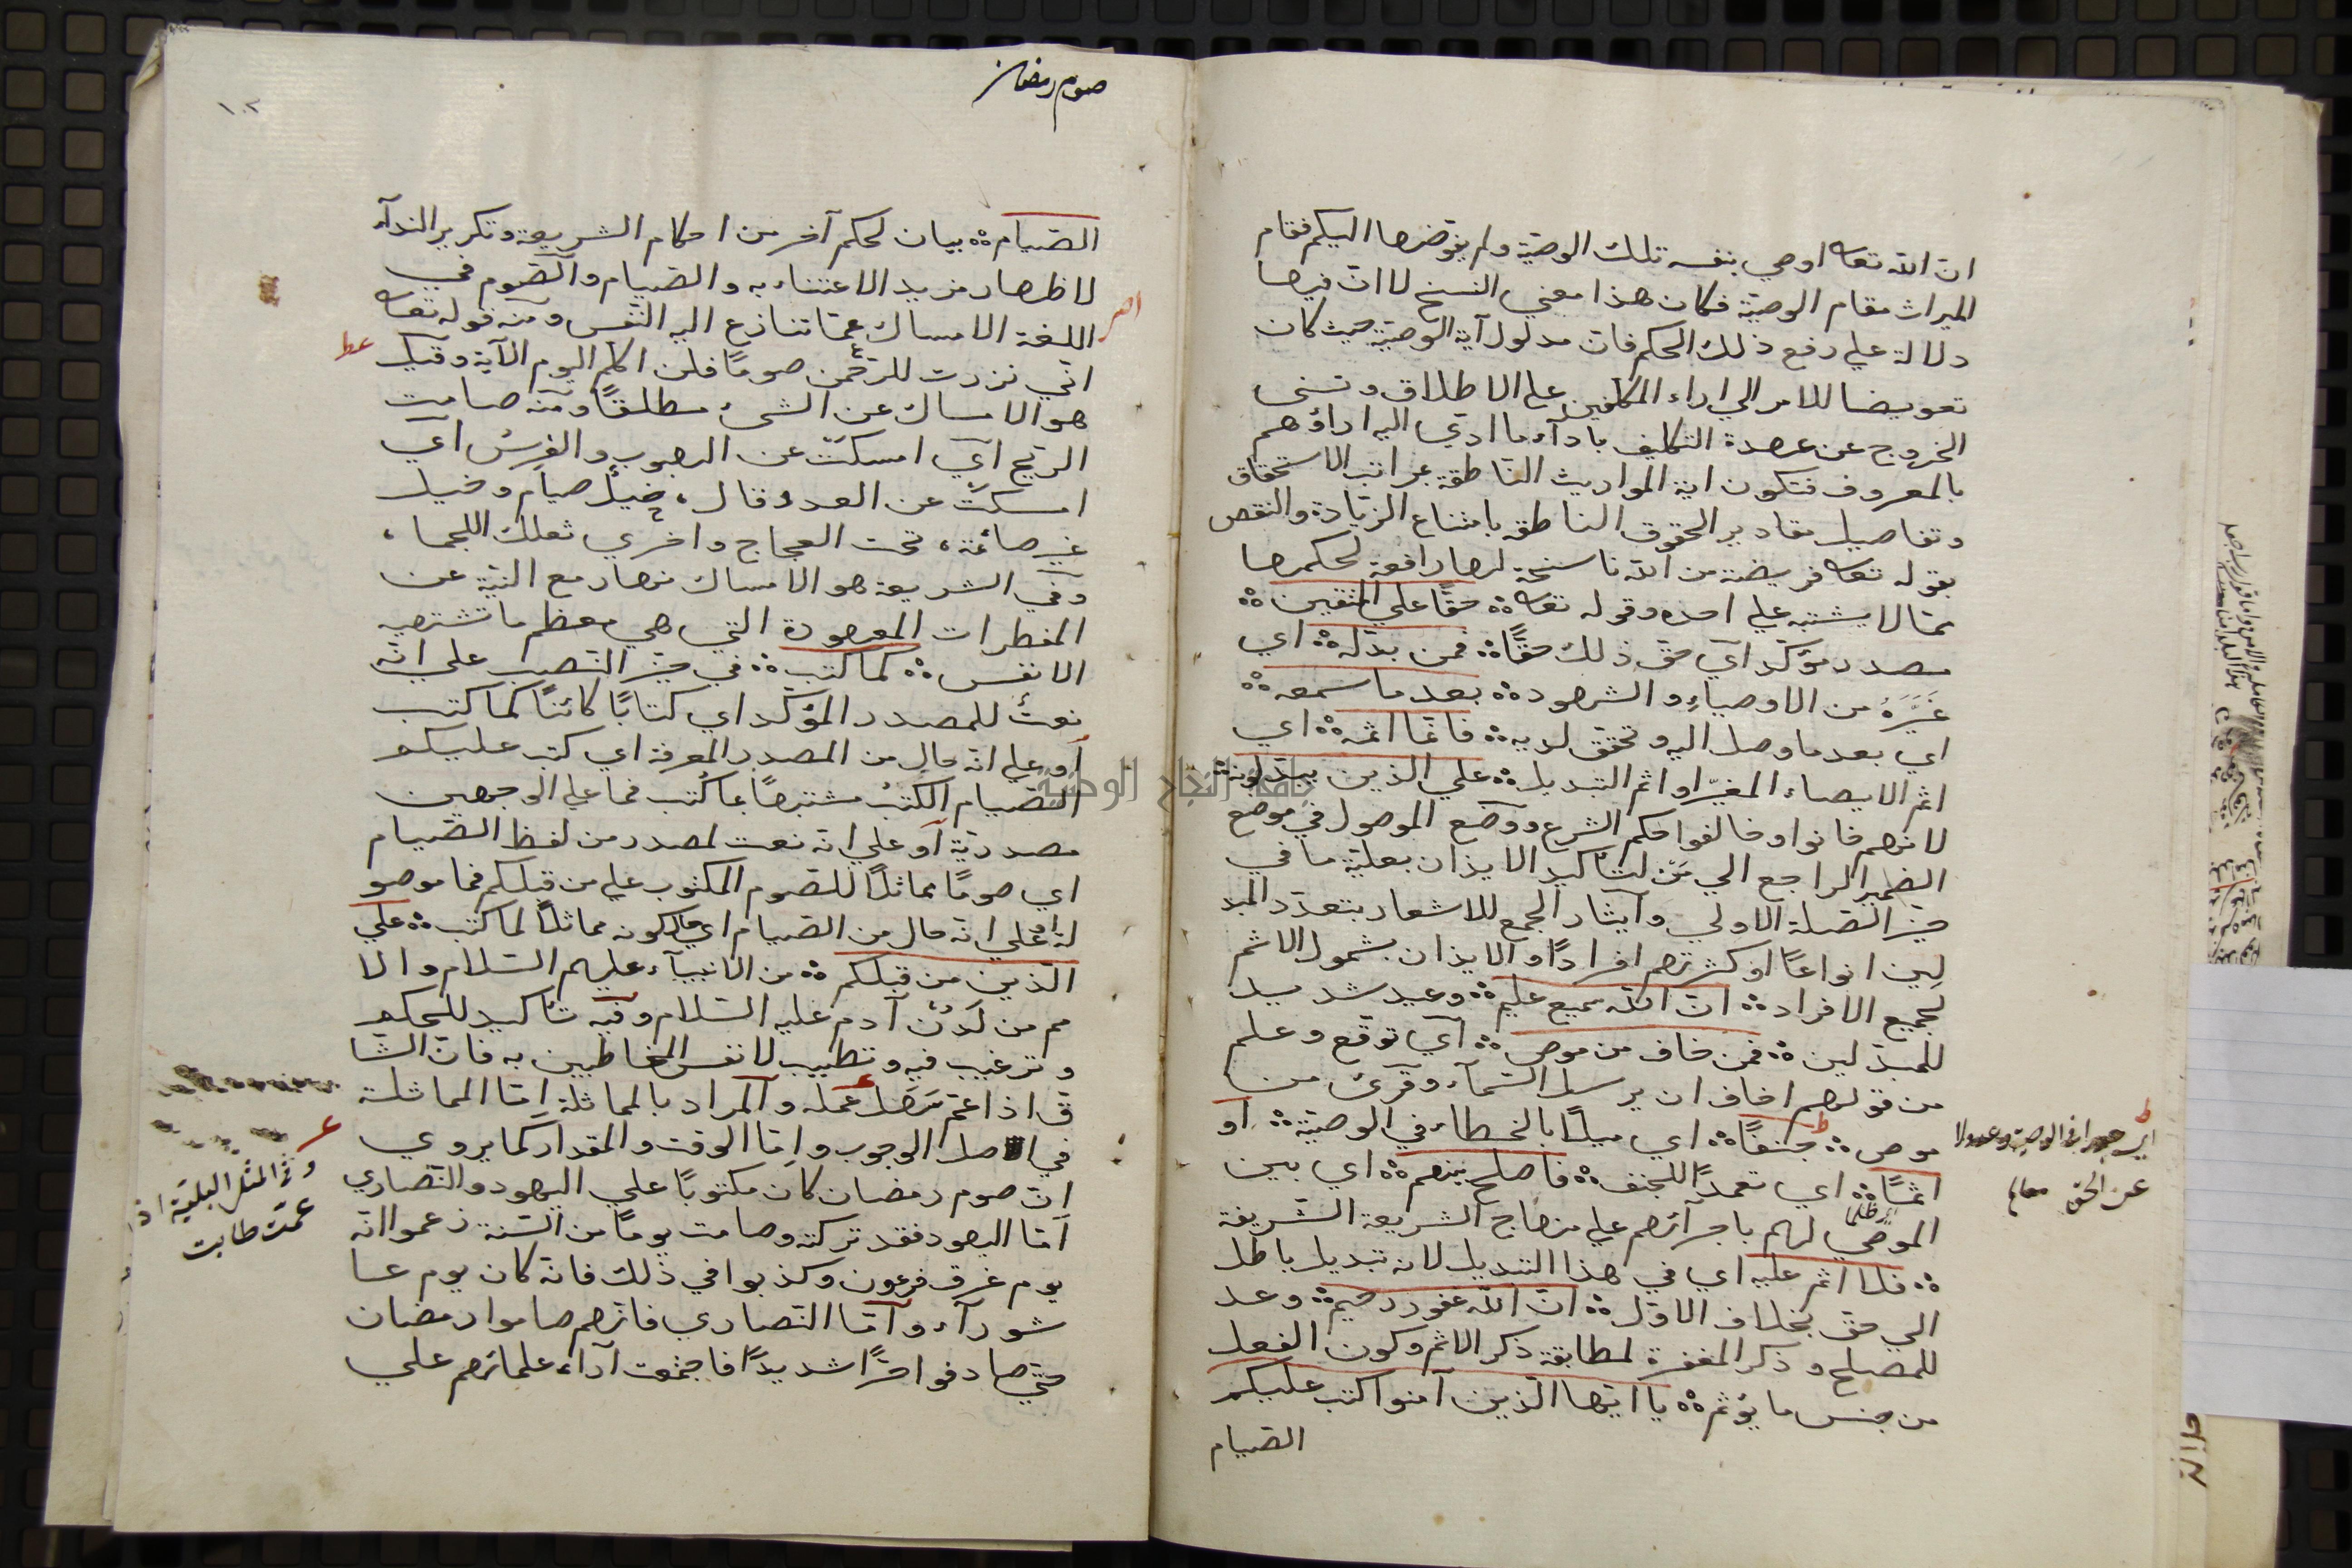 ان الله تعا اوصي بنفسه تلك الوصيّة ولم يفوّضها اليكم فقام
الميراث مقام الوصيّة فكان هذا معني النسخ لا ان فيها
دلالة علي رفع ذلك الحكم فان مدلول آية الوصيّة حيث كان
تعويضا للامر الي اراء المكلّفين علي الاطلاق وتسنى
الخروج عن عهدة التكليف باداء ما ادّي اليه اراؤهم
بالمعروف فتكون اية المواريث الناطقة بمراتب الاستحقاق
وتفاصيل مقادير الحقوق الناطقه بامتناع الزيادة والنقص
بقوله تعا فريضة من الله ناسخة لها رافعة لحكمها
ممّا لا يشتبه علي احد وقوله تعا حقًّا علي المتقين
مصدر مؤكّد اي حقّ ذلك حقًّا فمن بدّله اي
غَيَّرَهُ من الاوصياءِ والشهود بعد ما سمعه
اي بعد ما وصل اليه وتحقّق لديه فانّما اثمه اي
اثم الايصاء المغيّر او اثم التبديل علي الذين يبدّلونه
لانهم خانوا وخالفوا حكم الشرع ووضع الموصول في موضع
الضمير الراجع الي مَن لتأكيد الايذان بعليّة ما في
حيّز الصّلة الاولي وايثار الجمع للاشعار بتعدّد المبد
لين انواعًا او كثرتهم افرادًا والايذان بشمول الاثم
لجميع الافراد ان الله سميع عليم وعيد شديد
للمبدّلين فمن خاف من موص اي توقّع وعلم
من قولهم اخاف ان يرسل السّمآء وقرئ من
موص جنفًا اي ميلًا بالخطاء في الوصيّة او
اثمًا اي تعمدًا للجنف فاصلح بينهم اي بين
الموصَي لهم باجرآئهم علي منهاج الشريعة الشريفة
فلا اثم عليه اي في هذا التبديل لانه تبديل باطل
الي حق بخلاف الاوّل ان الله غفور رحيم وعد
للمصلح وذكر المغفرة لمطابقة ذكر الاثم وكون الفعل
من جنس ما يؤثم يا ايّها الّذين آمنوا كتب عليكم
الصّيام
اي جورا في الوصية وعدولا
عن الحق معالم
ظلما
صوم رمضان
١٠٢
الصّيام بيان لحكم آخر من احكام الشريعة وتكرير الندآء
لاظهار مزيد الاعتناء به والصّيام والصّوم في
اللغة الامساك عمّا تنازع اليه النّفس ومنه قوله تعا
انّي نذرت للرحمن صومًا فلن اكلّم اليوم الآية وقيل
هو الامساك عن الشئ مطلقًا ومنه صامت
الريح اي امسكت عن الهبوب والفرسُ اي
امسكت عن العدو قال، خيلٌ صيام وخيل
غير صائمة، تحت العجاج واخري تعلك اللجما،
وفي الشريعة هو الامساك نهارا مع النيّة عن
المفطرات المعهودة التي هي معظم ما تشتهيه
الانفس كما كتب في حيّز النّصب علي انّه
نعتٌ للمصدر المؤكّد اي كتابًا كائنًا كما كتب
أو علي انه حال من المصدر المعرفة اي كتب عليكم
الصّيام الكتب مشتبهًا بما كُتب فما علي الوجهين
مصدريّة أو علي انه نعت لمصدر من لفظ الصّيام
اي صومًا مماثلًا للصّوم المكتوب علي من قبلكم فما موصو
لة أو علي انه حال من الصّيام اي حال كونه مماثلًا لما كتب علي
الّذين من قبلكم من الانبيآء عليهم السّلام والا
مم من لدن آدم عليه السّلام وفيه تأكيد للحكم
وترغيب فيه وتطييب لانفس المخاطبين به فان الشّا
قّ اذا عمّ سَهل عمله والمراد بالمماثلة امّا المماثلة
في اصل الوجوب وامّا الوقت والمقدار كما يروي
ان صوم رمضان كان مكتوبًا علي اليهود والنّصاري
أمّا اليهود فقد تركته وصامت يومًا من السّنة زعموا انّه
يوم غرق فرعون وكذبوا في ذلك فانّه كان يوم عا
شورآء وأمّا النّصاري فانّهم صاموا رمضان
حتي صادفوا حرًّا شديدًا فاجتمعت آراء علمائهم علي
وفي المثل البليّة اذا
عمّت طابت
جامعة النجاح الوطنية